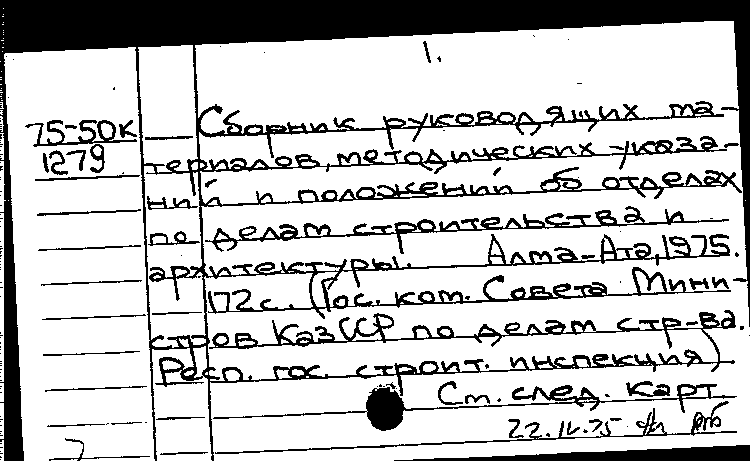 1.
75-50к Сборник руководящих ма-
1279 териалов, методических указа-
ний и положений об отделах
по делам строительства и
архитектуры. Алма-Ата, 1975.
172 с. (Гос. ком. Совета Мини-
стров КазССР по делам стр-ва.
Респ. гос. строит. инспекция)
Ст. след. карт.